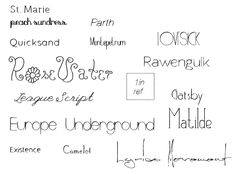 St. Marie
peach sundress
Parth
Quicksand
Montepetrum
LOVESICK
RoseWater
Rawengulk
1in
ref
League Script
Gatsby
Europe Underground
Matilde
Existence
Camelot